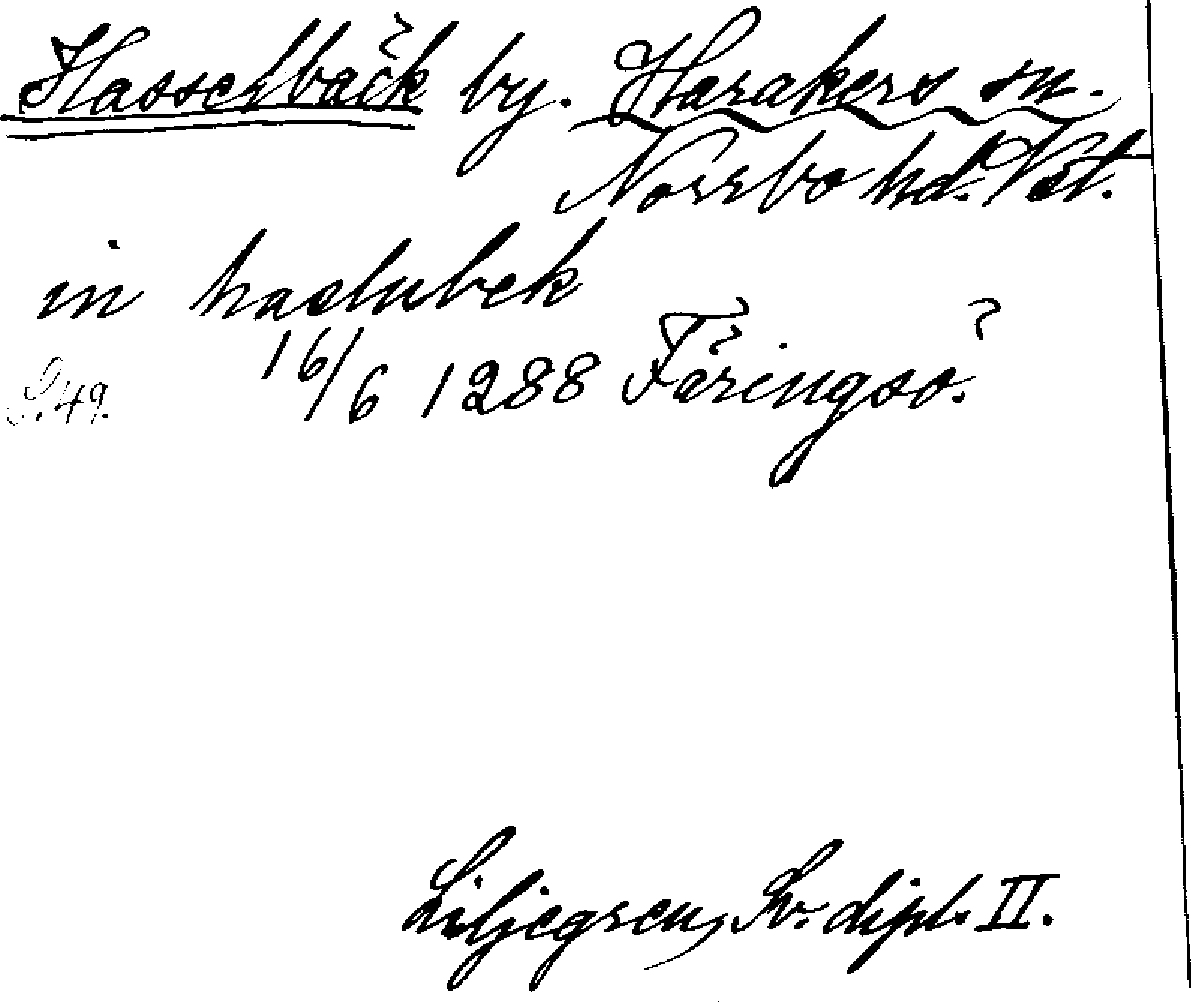 Hasselbäck by. Harakers sn.
Norrbo hd. Vst.
in haslubek
S. 49. 16/6 1288 Färingsö.
Liljegren, Sv. dipl. II.